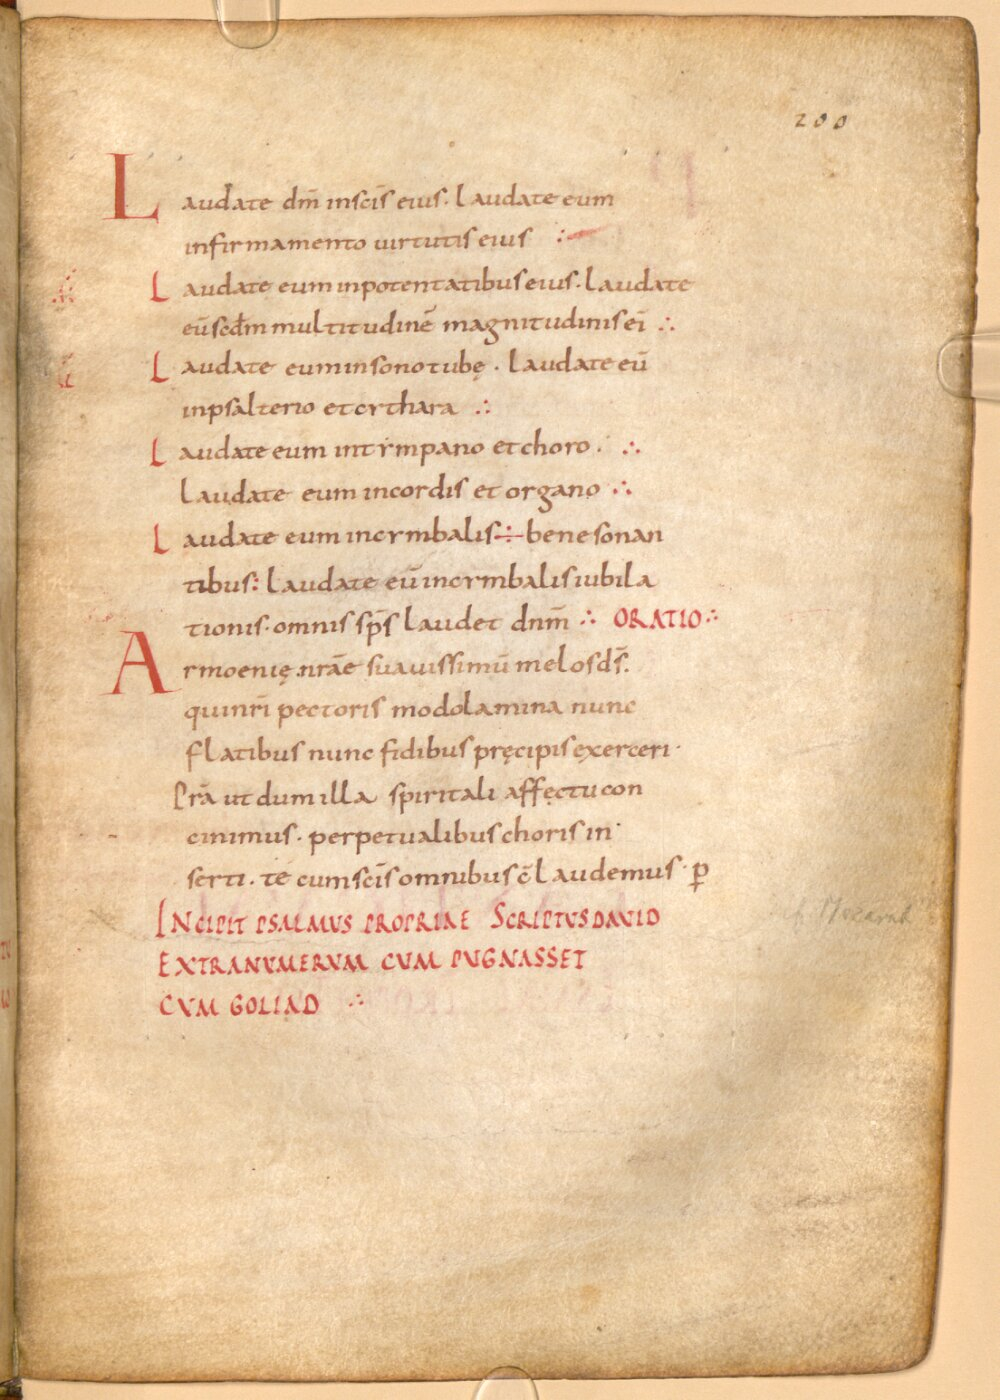 200
Laudate dm̄ inscīs eius· Laudate eum
infirmamento uirtutis eius ∴
Laudate eum inpotentatibus eius· Laudate
eū scdm̄ multitudinē magnitudinis eī ∴
Laudate eum in sono tubę · Laudate eū
inpsalterio et cythara ∴
Laudate eum intympano et choro · ∴
Laudate eum incordis et organo ∴
Laudate eum incymbalis ÷ bene sonan
tibus: Laudate eū incymbalis iubila
tionis· omnis sp̄s laudet dnm̄ ∴ ORATIO ∴
Armoenię nrāe suauissimū melos ds̄:
quinrī pectoris modolamina nunc
flatibus nunc fidibus pręcipis exerceri·
Prā ut dum illa spiritali affęctu con
cinimus· perpetualibus choris in
serti· te cum scīs omnibus c̄laudemus· ꝑ
INCIPIT PSALMUS PROPRIAE SCRIPTUS DAVID
EXTRA NUMERUM CUM PUGNASSET
CUM GOLIAD ∴